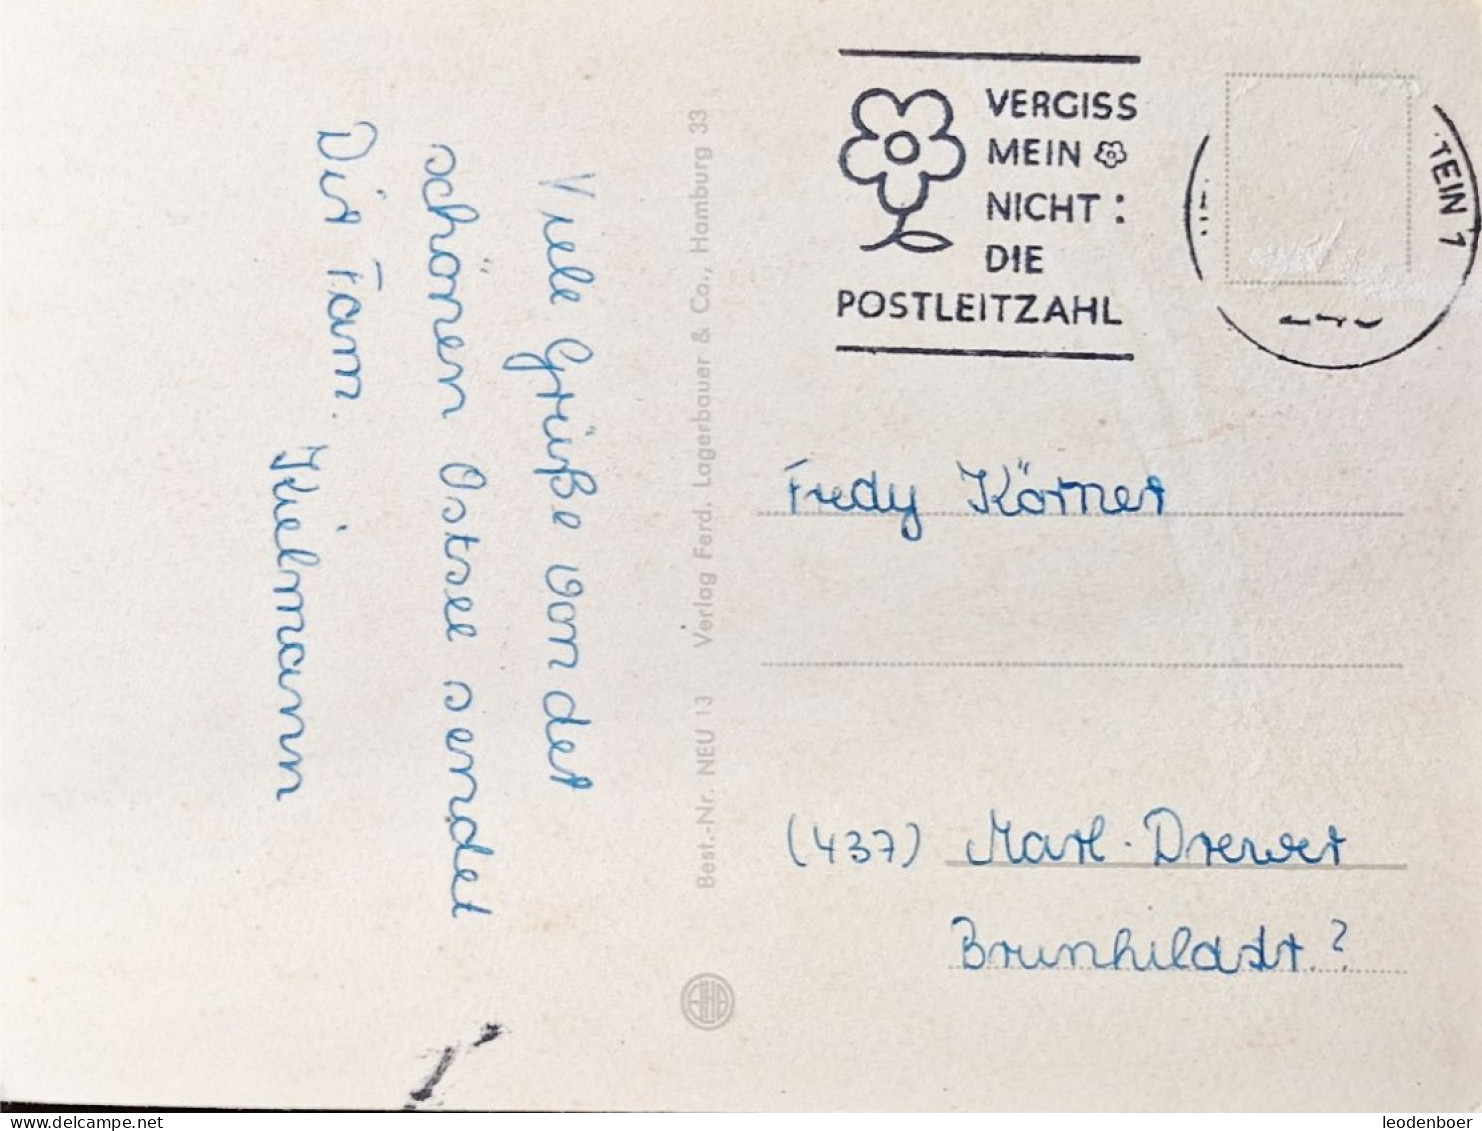 Viele Grüße von der
schönen Ostsee sendet
Dir Fam.
Kielmann
Best.-Nr. NEU 13 Verlag Ferd. Lagerbauer & Co., Hamburg 33
VERGISS
MEIN
NICHT:
DIE
POSTLEITZAHL
TEIN 1
Fredy Körner
(437) Marl-Drewer
Brunhildstr. ?
delcampe.net
leodenboer